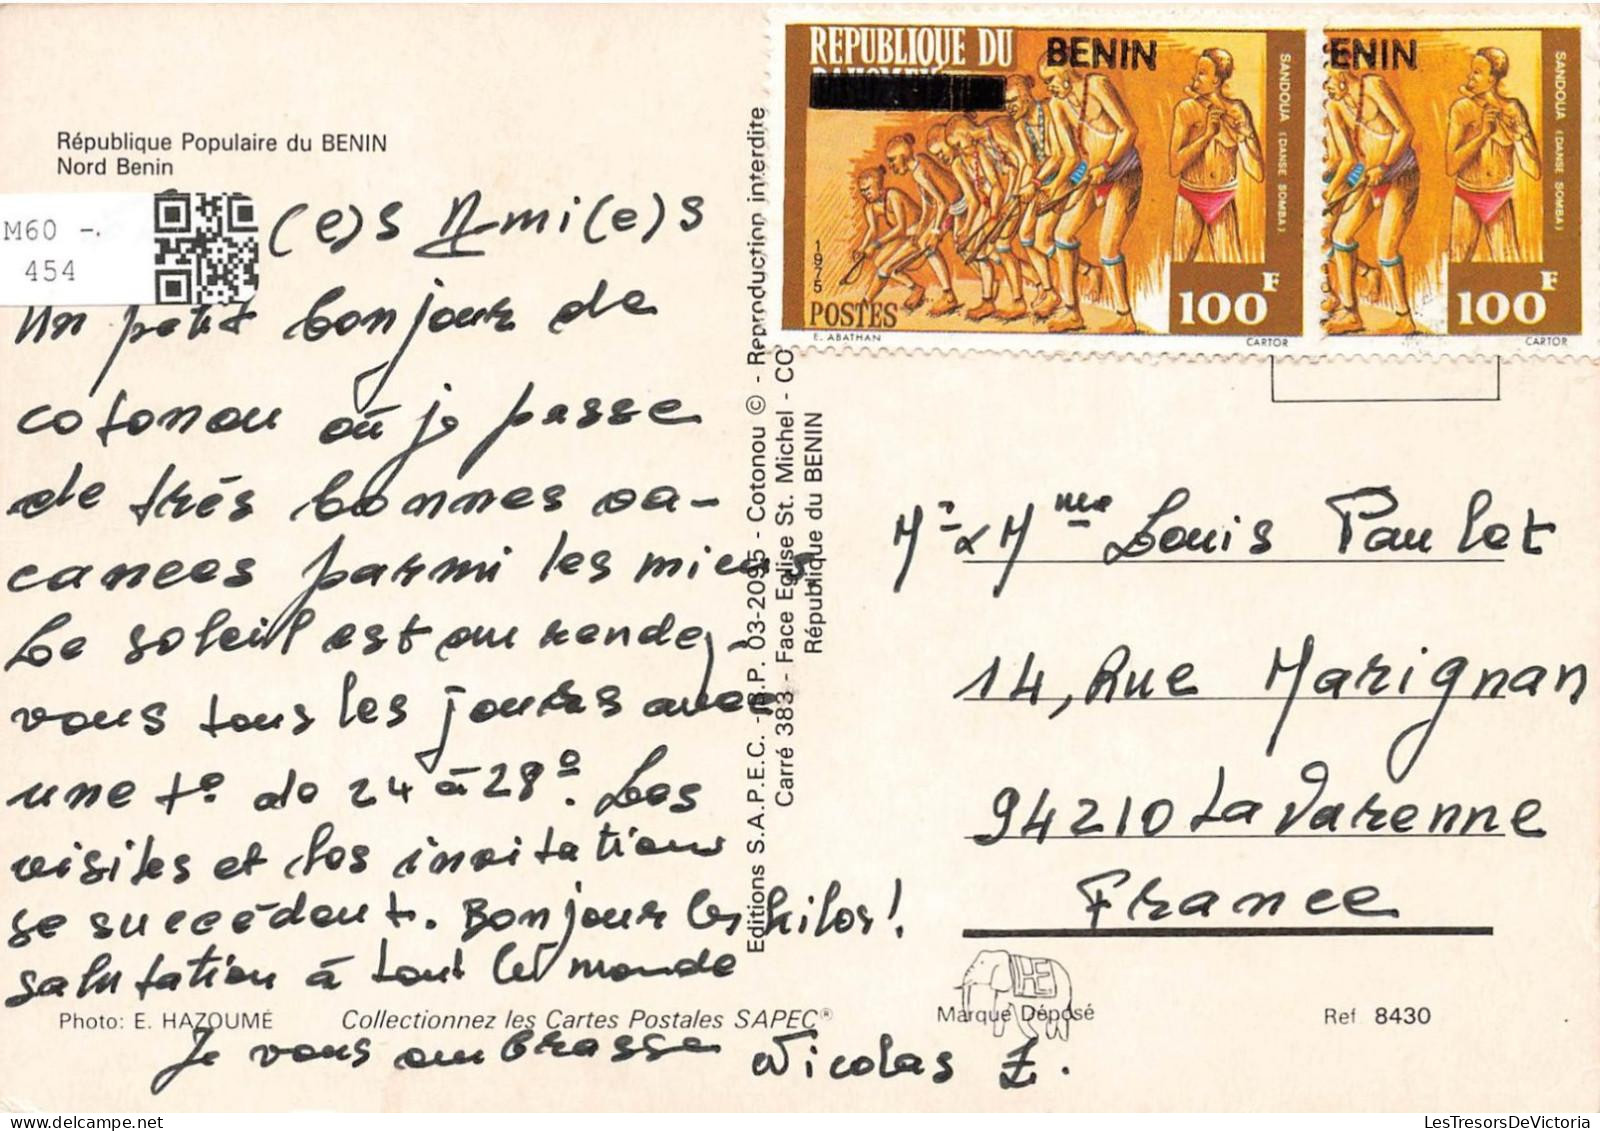 République Populaire du BENIN
Nord Benin
M60 -
454
(e)s Ami(e)s
Un petit bonjour de
cotonou où je passe
de très bonnes va-
cances parmi les miens
Le soleil est au rendez-
vous tous les jours avec
une t° de 24 à 28°. Les
visites et les invitations
se succèdent. Bonjour les kilos!
salutation à tout le monde
Je vous embrasse Nicolas Z.
Photo: E. HAZOUMÉ
Collectionnez les Cartes Postales SAPEC®
Editions S.A.P.E.C. - B.P. 03-2095 - Cotonou © - Reproduction interdite
Carré 383 - Face Eglise St. Michel - CO
République du BENIN
REPUBLIQUE DU BENIN
SANDOUA (DANSE SOMBA)
1975
POSTES
100F
E. ABATHAN
CARTOR
ENIN
SANDOUA (DANSE SOMBA)
100F
CARTOR
Mr & Mme Louis Paulet
14, Rue Marignan
94210 La Varenne
France
HE
Marque Déposé
Ref 8430
LesTresorsDeVictoria.com